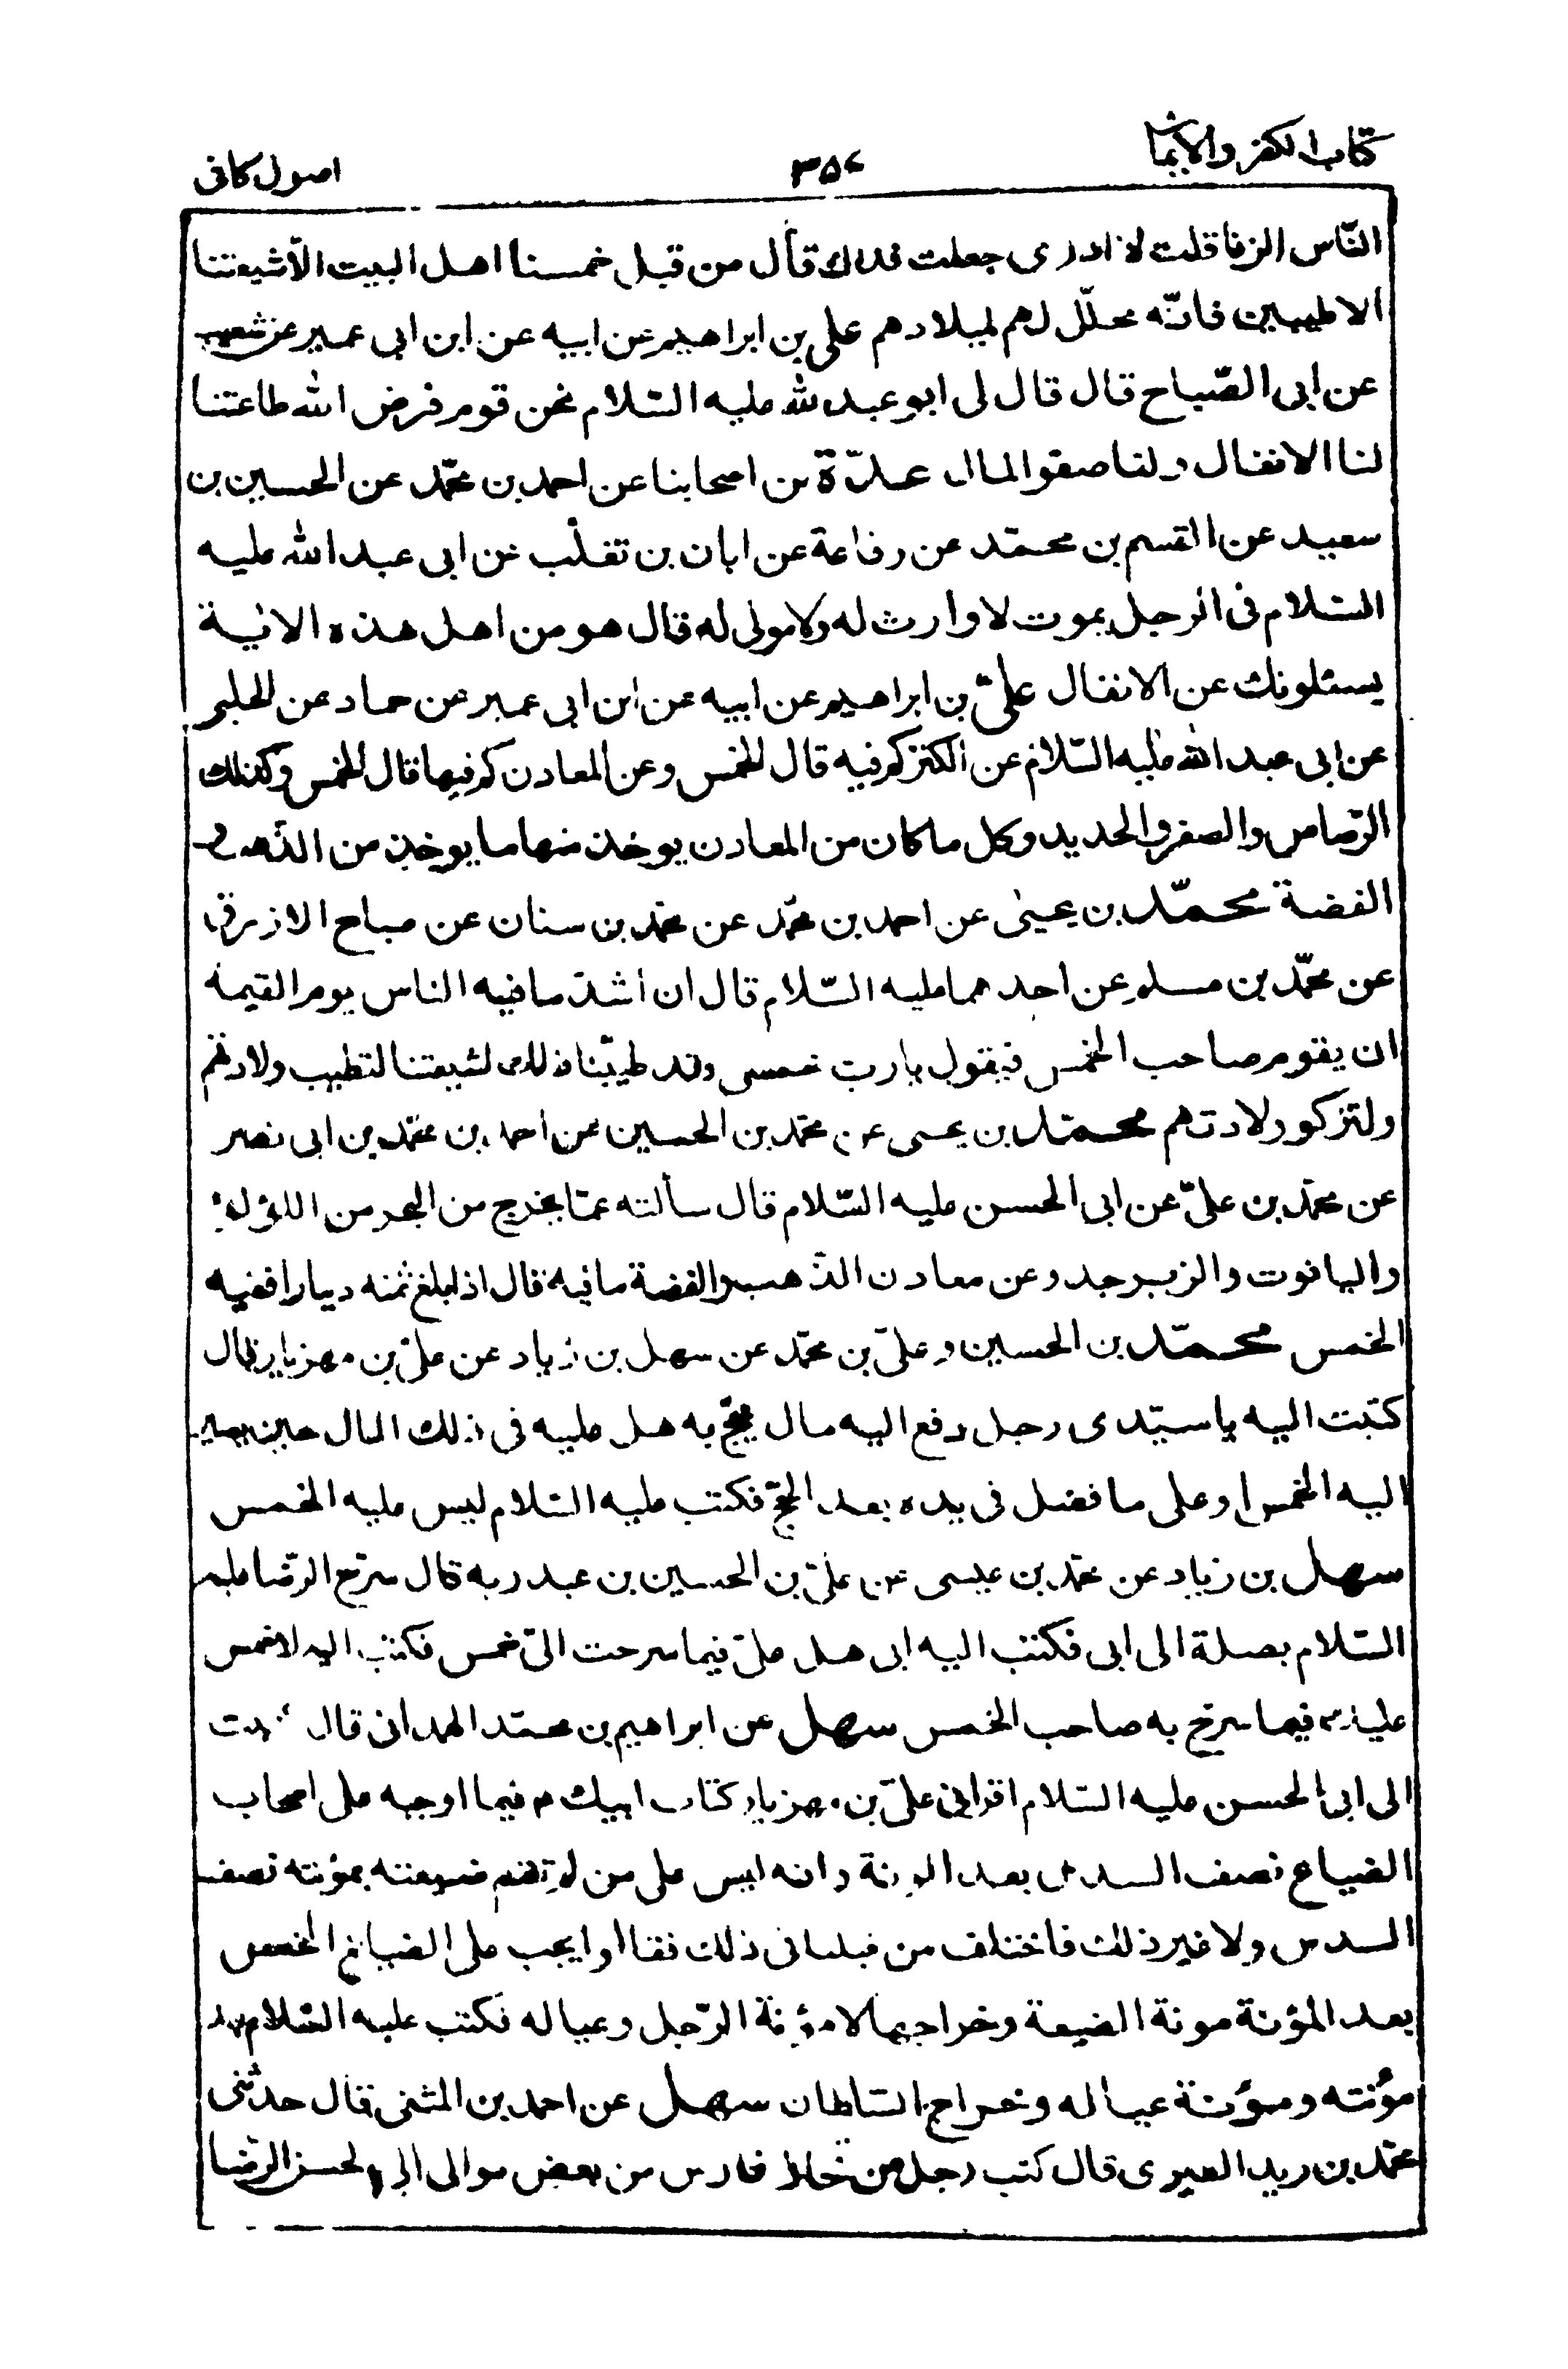 كتاب الكفر والايمان
۳۵۷
اصول كافى
النّاس الزنا قلت لا ادرى جعلت فداك قال من قبل خمسنا اهل البيت الّا شيعتنا
الاطيبين فانّه محلّل لهم لميلادهم على بن ابراهيم عن ابيه عن ابن ابى عمير عن شعيب
عن ابى الصّباح قال قال لى ابو عبد الله عليه السّلام نحن قوم فرض الله طاعتنا
لنا الانفال ولنا صفو المال عدّة من اصحابنا عن احمد بن محمّد عن الحسين بن
سعيد عن القسم بن محمّد عن رفاعة عن ابان بن تغلب عن ابى عبد الله عليه
السّلام فى الرجل يموت لا وارث له ولا مولى له قال هو من اهل هذه الاية
يسئلونك عن الانفال علىّ بن ابراهيم عن ابيه عن ابن ابى عمير عن حماد عن الحلبى
عن ابى عبد الله عليه السّلام عن الكنز كم فيه قال الخمس وعن المعادن كم فيها قال الخمس وكذلك
الرّصاص والصفر والحديد وكل ما كان من المعادن يوخذ منها ما يوخذ من الذّهب و
الفضة محمّد بن يحيى عن احمد بن محمّد عن محمّد بن سنان عن صباح الازرق
عن محمّد بن مسلم عن احدهما عليه السّلام قال ان اشدّ ما فيه الناس يوم القيمة
ان يقوم صاحب الخمس فيقول يا ربّ خمسى وقد طيّبنا ذلك لشيعتنا لتطيب ولادتهم
ولتزكو ولادتهم محمّد بن يحيى عن محمّد بن الحسين عن احمد بن محمّد بن ابى نصر
عن محمّد بن علىّ عن ابى الحسن عليه السّلام قال سألته عمّا يخرج من البحر من اللؤلؤ
والياقوت والزبرجد وعن معادن الذّهب والفضة ما فيه قال اذا بلغ ثمنه دينارا ففيه
الخمس محمّد بن الحسين وعلىّ بن محمّد عن سهل بن زياد عن علىّ بن مهزيار قال
كتبت اليه يا سيّدى رجل دفع اليه مال يحجّ به هل عليه فى ذلك المال حين يصير
اليه الخمس او على ما فضل فى يده بعد الحجّ فكتب عليه السّلام ليس عليه الخمس
سهل بن زياد عن محمّد بن عيسى عن علىّ بن الحسين بن عبد ربه قال سرّح الرّضا عليه
السّلام بصلة الى ابى فكتب اليه ابى هل علىّ فيما سرحت الىّ خمس فكتب اليه لا خمس
عليك فيما سرّح به صاحب الخمس سهل عن ابراهيم بن محمّد الهمدانى قال كتبت
الى ابى الحسن عليه السّلام اقرانى علىّ بن مهزيار كتاب ابيك م فيما اوجبه على اصحاب
الضياع نصف السدس بعد المونة وانه ليس على من لم تقم ضيعته بمؤنته نصف
السدس ولا غير ذلك فاختلف من قبلنا فى ذلك فقالوا يجب على الضياع الخمس
بعد المؤنة مونة الضيعة وخراجها لا مؤنة الرّجل وعياله فكتب عليه السّلام بعد
مؤنته ومؤنة عياله وخراج السّلطان سهل عن احمد بن المثنى قال حدثنى
محمّد بن زيد الطبرى قال كتب رجل من تجار فارس من بعض موالى ابى الحسن الرّضا